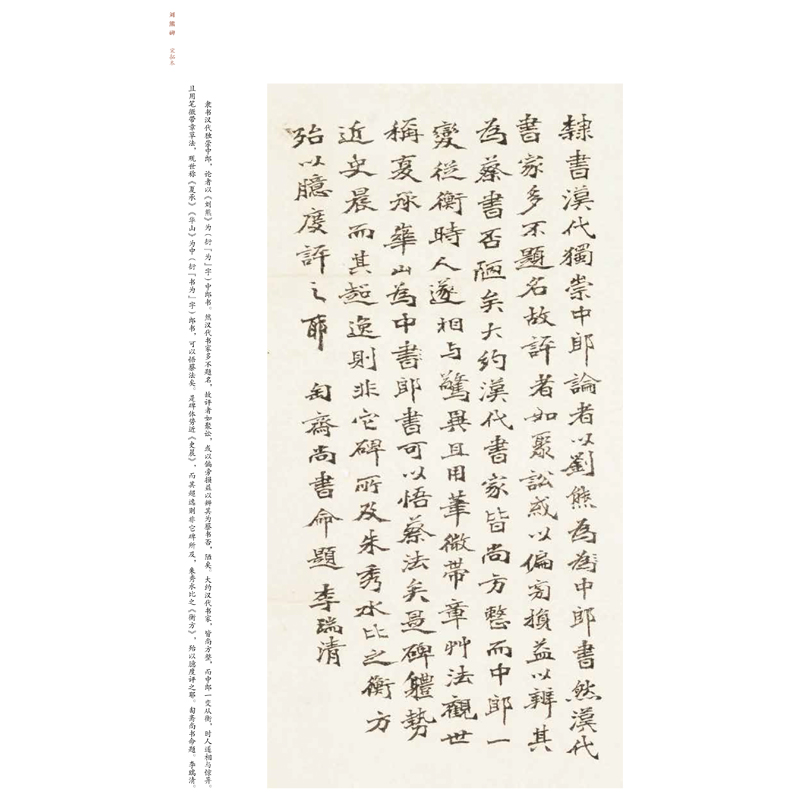 隸書漢代獨崇中郎論者以劉熊為為中郎書然漢代
書家多不題名故評者如聚訟或以偏旁損益以辨其
為蔡書否陋矣大約漢代書家皆尚方整而中郎一
變從衡時人遂相与驚異且用筆微帶章艸法觀世
稱夏承華山為中書郎書可以悟蔡法矣是碑體勢
近史晨而其超逸則非它碑所及朱秀水比之衡方
殆以臆度評之耶 匋齋尚書命題 李瑞清
隶书汉代独崇中郎，论者以《刘熊》为（衍「为」字）中郎书，然汉代书家多不题名，故评者如聚讼，或以偏旁损益以辨其为蔡书否，陋矣。大约汉代书家，皆尚方整，而中郎一变从衡，时人遂相与惊异。
且用笔微带章草法，观世称《夏承》《华山》为中（衍「书为」字）郎书，可以悟蔡法矣。是碑体势近《史晨》，而其超逸则非它碑所及，朱秀水比之《衡方》，殆以臆度评之耶。匋斋尚书命题。李瑞清。
刘熊碑 宋拓本